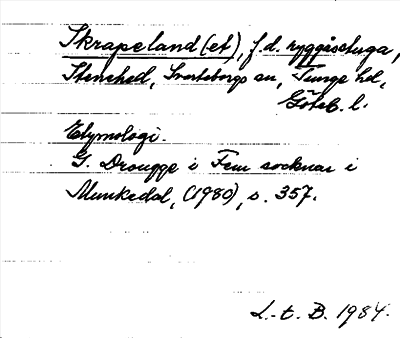 Skrapeland (et), f.d. ryggåsstuga,
Stenehed, Svarteborgs sn, Tunge hd,
Göteb. l.
Etymologi.
G. Drougge i Fem socknar i
Munkedal, (1980), s. 357.
L.-t. B. 1984.